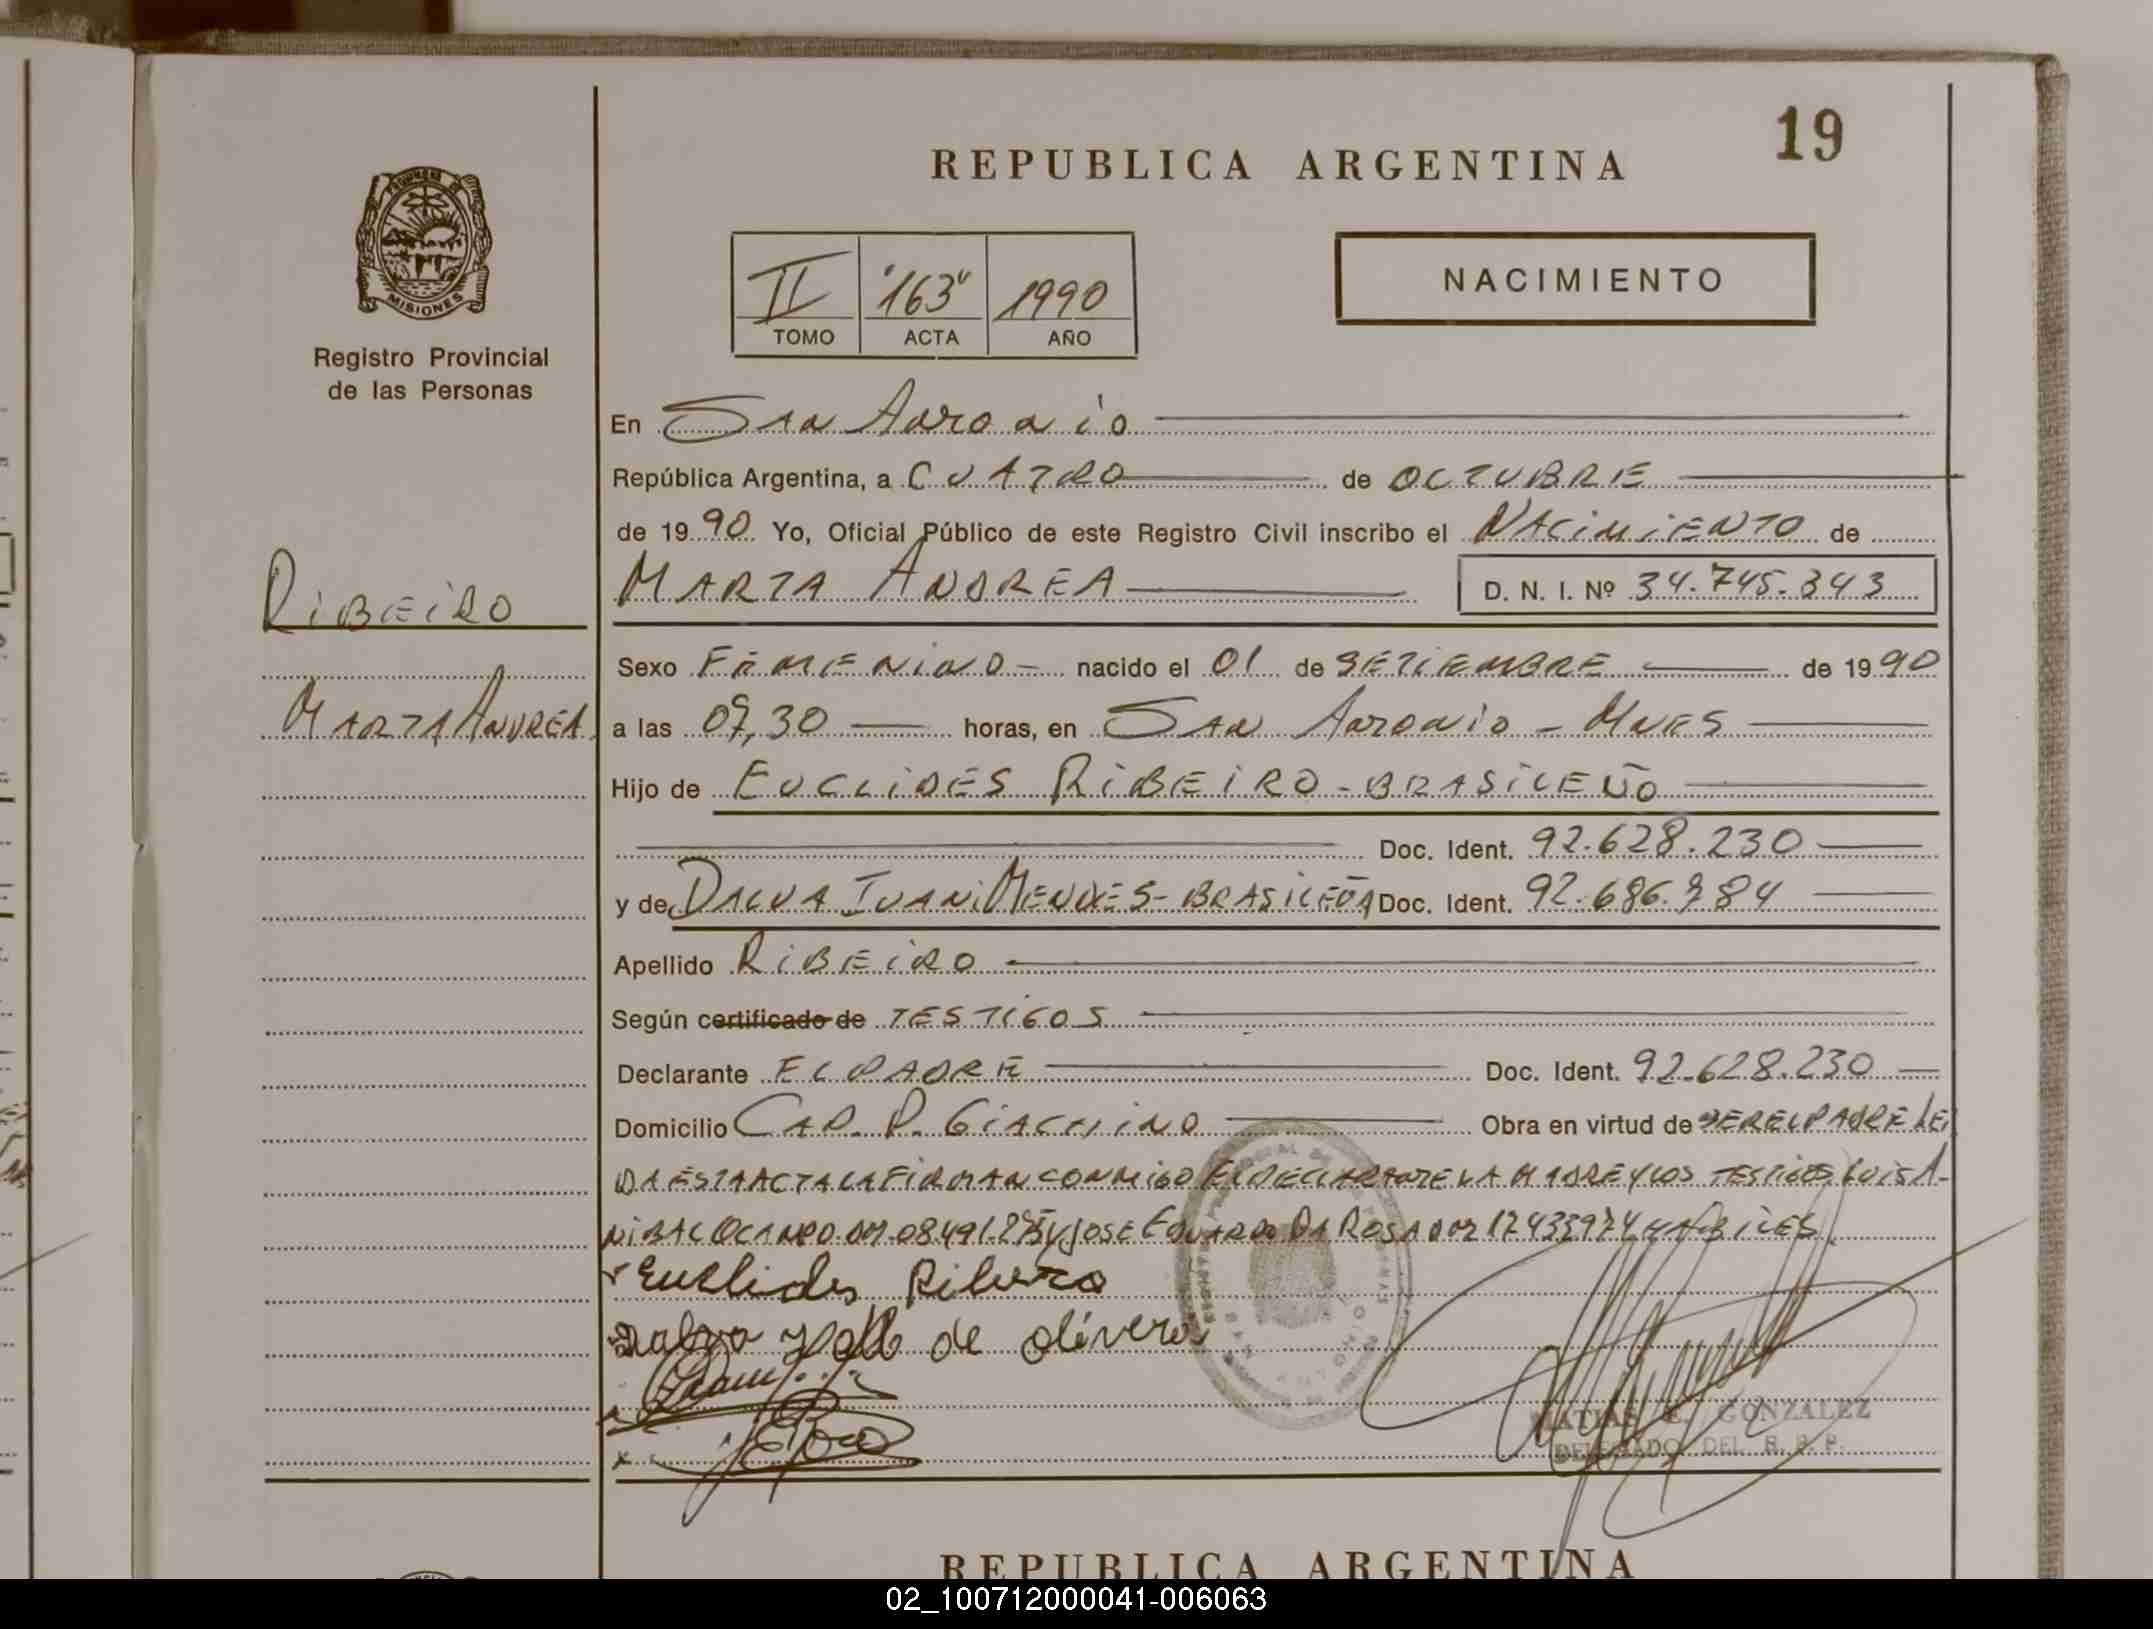 19
REPUBLICA ARGENTINA
MISIONES
Registro Provincial
de las Personas
II "163" 1990
TOMO ACTA AÑO
NACIMIENTO
En San Antonio
República Argentina, a CUATRO de OCTUBRE
de 1990 Yo, Oficial Público de este Registro Civil inscribo el NACIMIENTO de
RIBEIRO
MARTA ANDREA
MARTA ANDREA D. N. I. Nº 34.745.343
Sexo FEMENINO nacido el 01 de SETIEMBRE de 1990
a las 07,30 horas, en SAN ANTONIO - MNES
Hijo de EUCLIDES RIBEIRO - BRASILEÑO
Doc. Ident. 92.628.230
y de DALVA IVANI MENDES - BRASILEÑA Doc. Ident. 92.686.784
Apellido RIBEIRO
Según certificado de TESTIGOS
Declarante EL PADRE Doc. Ident. 92.628.230
Domicilio CAP. P. GIACHINO Obra en virtud de SER EL PADRE LEI
DA ESTA ACTA LA FIRMAN CONMIGO EL DECLARANTE LA MADRE Y LOS TESTIGOS LUIS A-
NIBAL OCAMPO Y JOSE EDUARDO DA ROSA HABILES
Euclides Ribero
Dalva de olivera
MATIAS E. GONZALEZ
DELEGADO DEL R. P. P.
REPUBLICA ARGENTINA
02_100712000041-006063